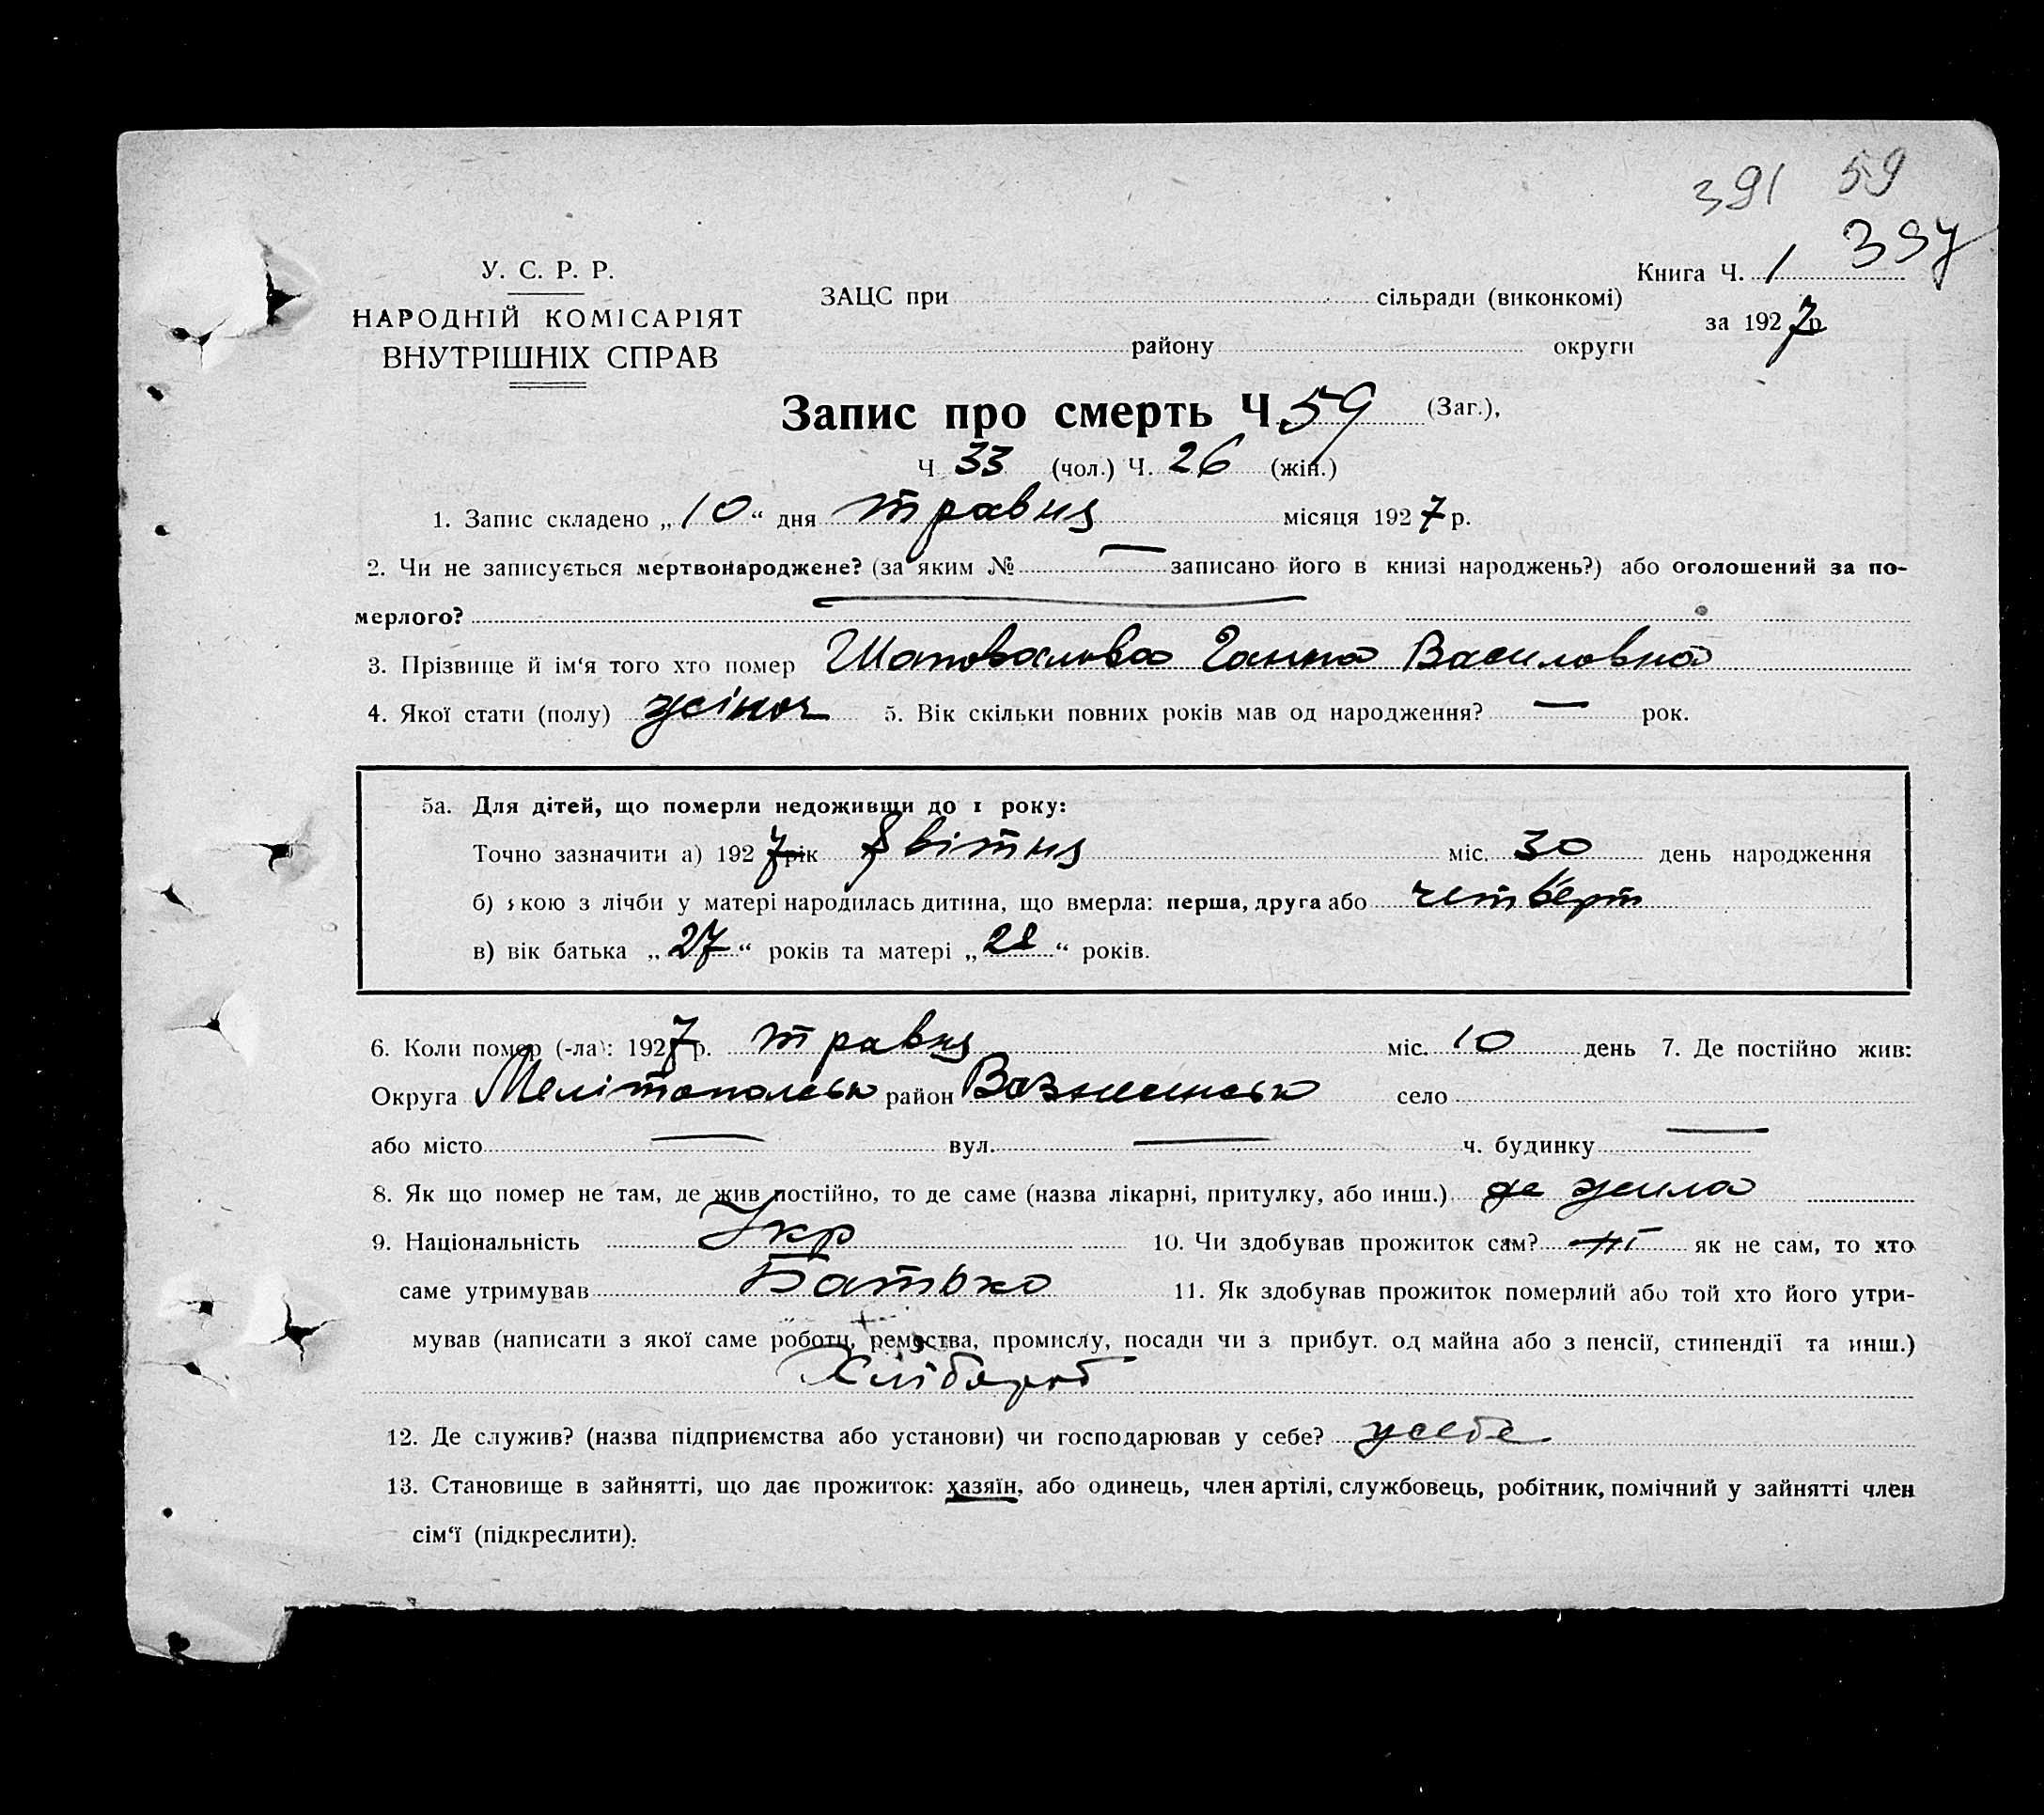 391 59
397
У. С. Р. Р.
НАРОДНІЙ КОМІСАРІЯТ
ВНУТРІШНІХ СПРАВ
ЗАЦС при сільради (виконкомі)
району округи
Книга Ч. 1
за 1927 р
Запис про смерть Ч. 59 (Заг.),
Ч 33 (чол.) Ч. 26 (жін.)
1. Запис складено „10“ дня травня місяця 1927 р.
2. Чи не записується мертвонароджене? (за яким № — записано його в книзі народжень?) або оголошений за по-
мерлого?
3. Прізвище й ім‘я того хто помер Шаповалова Ганна Василовна
4. Якої стати (полу) жіноч 5. Вік скільки повних років мав од народження? — рок.
5а. Для дітей, що померли недоживши до 1 року:
Точно зазначити а) 1927 рік квітня міс. 30 день народження
б) якою з лічби у матері народилась дитина, що вмерла: перша, друга або четверт
в) вік батька „27“ років та матері „28“ років.
6. Коли помер (-ла): 1927 р. травня міс. 10 день 7. Де постійно жив:
Округа Мелітопольськ район Вознесенськ село
або місто — вул. — ч. будинку —
8. Як що помер не там, де жив постійно, то де саме (назва лікарні, притулку, або инш.) де жила
9. Національність Укр 10. Чи здобував прожиток сам? ні як не сам, то хто
саме утримував Батько 11. Як здобував прожиток померлий або той хто його утри-
мував (написати з якої саме роботи, ремества, промислу, посади чи з прибут. од майна або з пенсії, стипендії та инш.)
Хлібороб
12. Де служив? (назва підприємства або установи) чи господарював у себе? усебе
13. Становище в зайнятті, що дає прожиток: хазяїн, або одинець, член артілі, службовець, робітник, помічний у зайнятті член
сім‘ї (підкреслити).